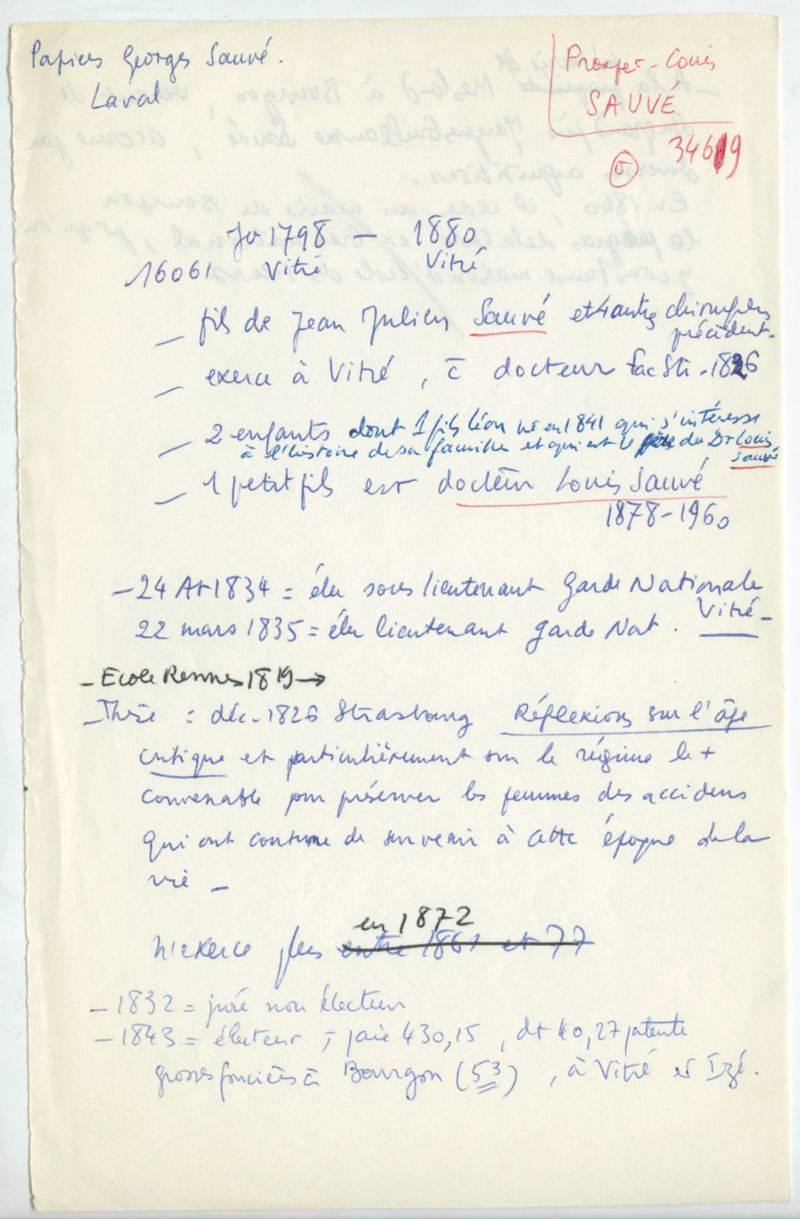 Papiers Georges Sauvé.
Laval
Prosper-Louis
SAUVÉ
34619
Jr 1798 – 1880
16061 Vitré Vitré
– fils de Jean Julien Sauvé et 4 autres chirurgiens
précédent.
– exerce à Vitré, c̄ docteur fac Str. 1826
– 2 enfants dont 1 fils Léon né en 1841 qui s'intéresse
à l'histoire de sa famille et qui est le père du Dr Louis
Sauvé
– 1 petit fils est docteur Louis Sauvé
1878-1960
– 24 At 1834 = élu sous lieutenant Garde Nationale
Vitré –
22 mars 1835 = élu lieutenant Garde Nat.
– Ecole Rennes 1819 →
– Thèse : déc. 1826 Strasbourg Réflexions sur l'âge
critique et particulièrement sur le régime le +
convenable pour préserver les femmes des accidens
qui ont coutume de survenir à cette époque de la
vie –
en 1872
n'exerce plus entre 1861 et 77
– 1832 = juré non électeur
– 1843 = électeur, paie 430,15, dt 40,27 patente
foncières à Bourgon (53), à Vitré et Izé.